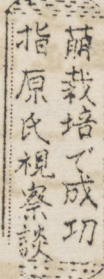 萠栽培で成功
指原氏視察談